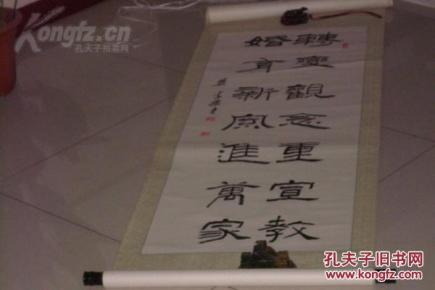 Kongfz.cn
孔夫子拍卖网
轉變觀念重宣教
婚育新風進萬家
孔夫子旧书网
www.kongfz.com